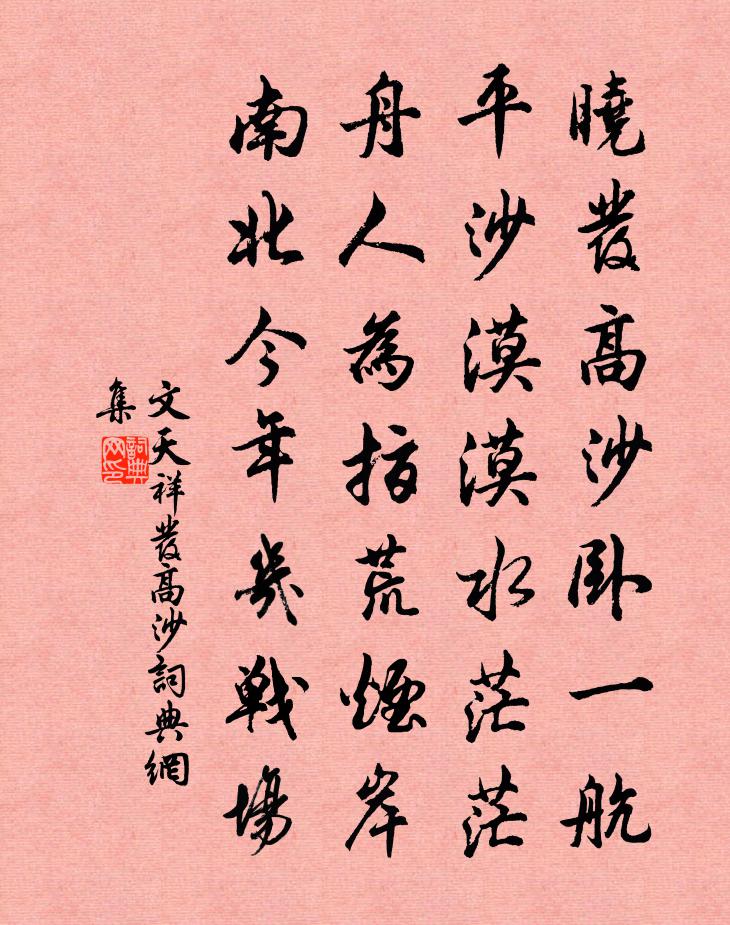 曉發高沙卧一航
平沙漠漠水茫茫
舟人為指荒煙岸
南北今年幾戰場
文天祥發高沙詞典網
集
詞典
网印